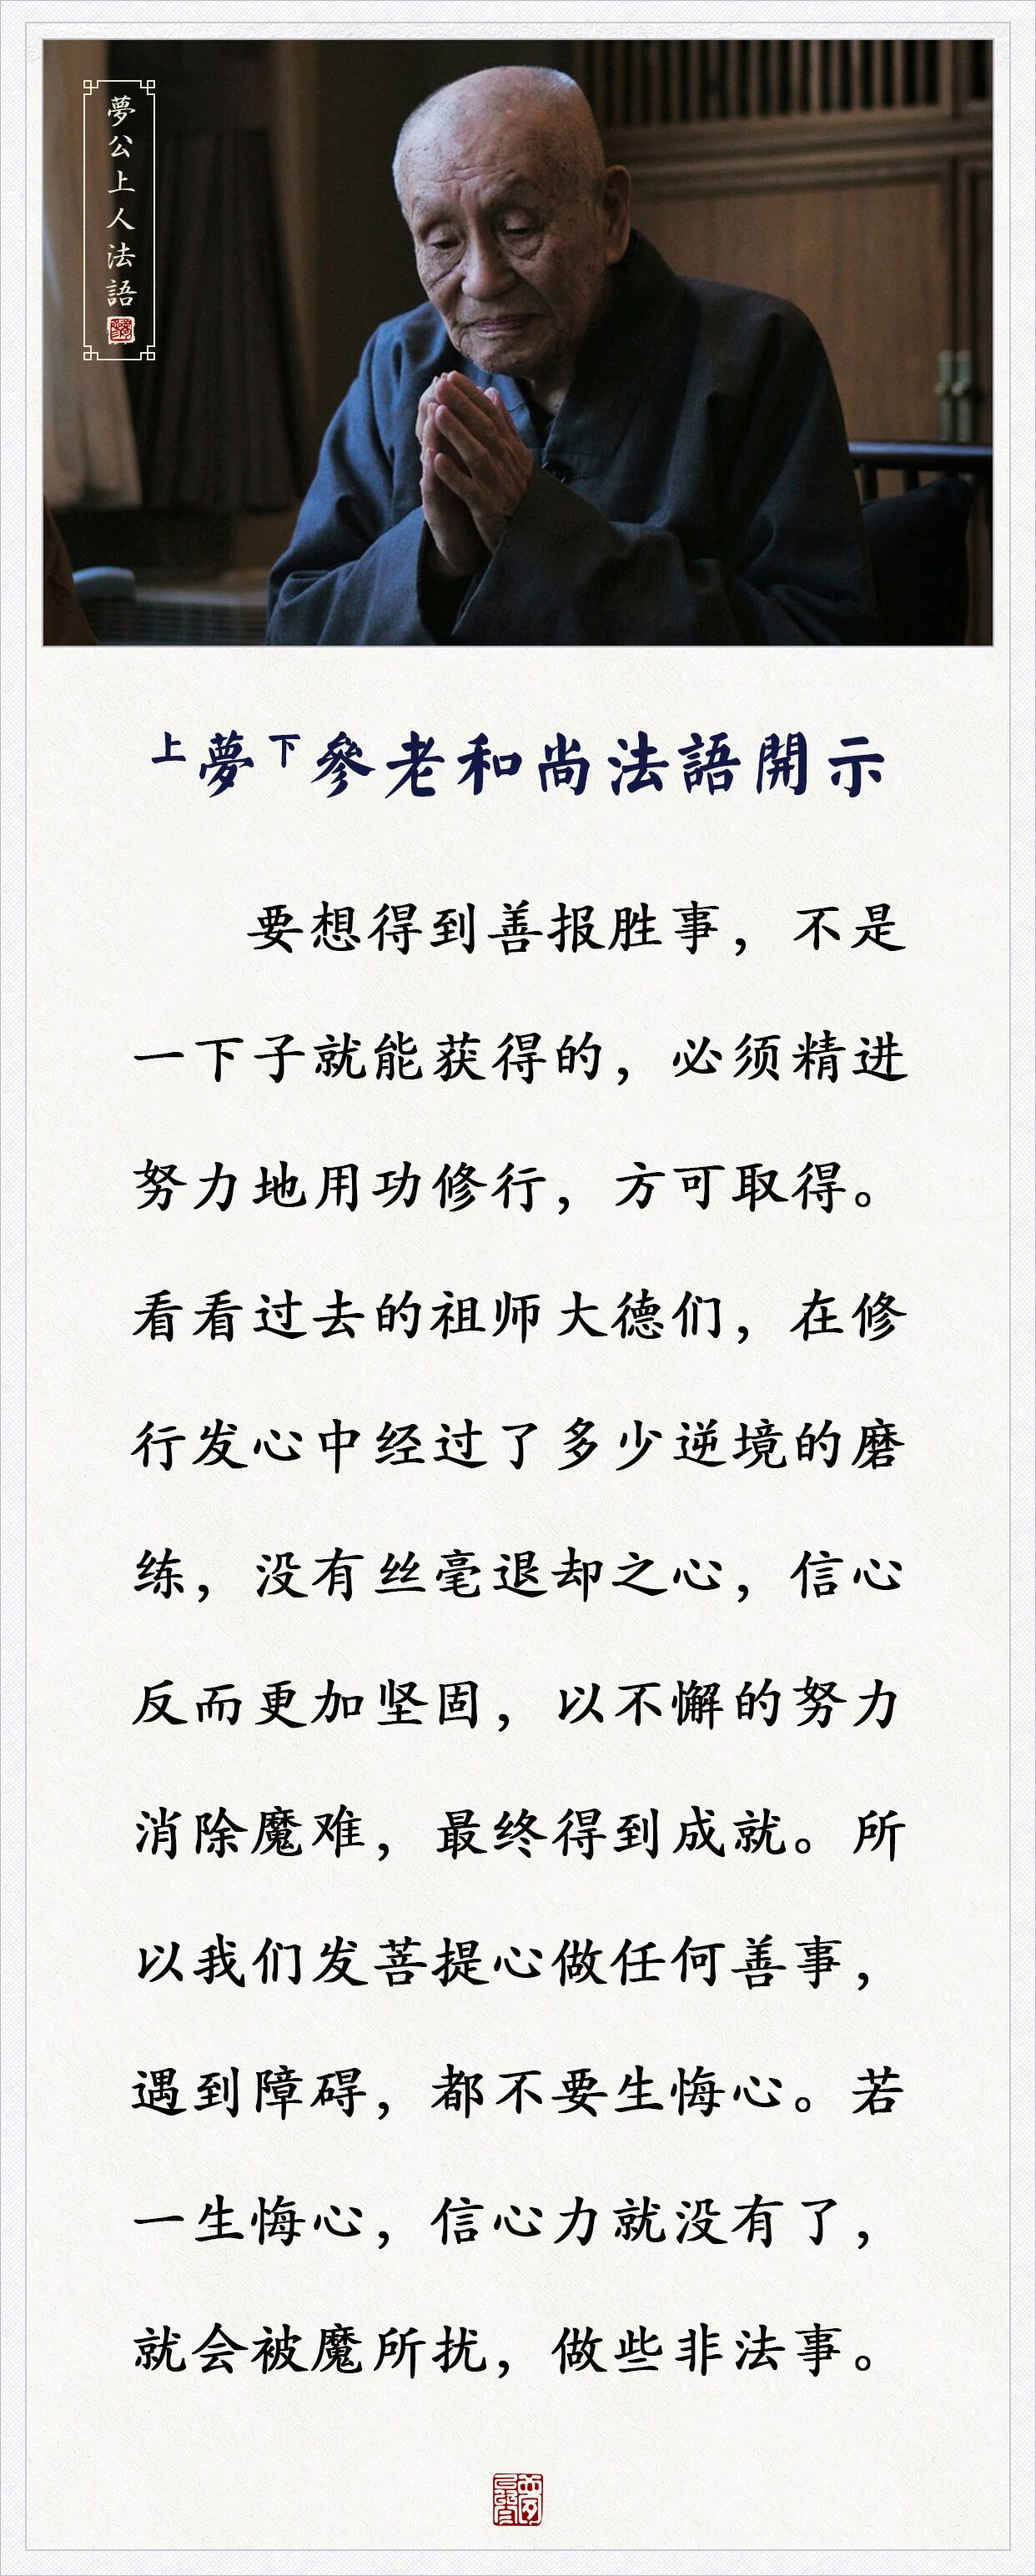 夢公上人法語
上夢下參老和尚法語開示
要想得到善报胜事，不是
一下子就能获得的，必须精进
努力地用功修行，方可取得。
看看过去的祖师大德们，在修
行发心中经过了多少逆境的磨
练，没有丝毫退却之心，信心
反而更加坚固，以不懈的努力
消除魔难，最终得到成就。所
以我们发菩提心做任何善事，
遇到障碍，都不要生悔心。若
一生悔心，信心力就没有了，
就会被魔所扰，做些非法事。